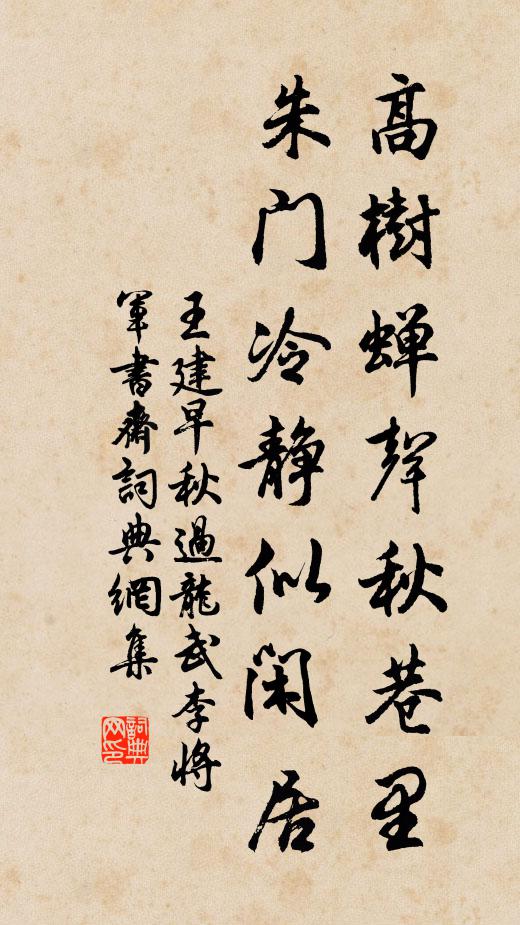 高樹蟬聲秋巷里
朱门冷静似閑居
王建早秋過龍武李將
軍書齋詞典網集
詞典网印